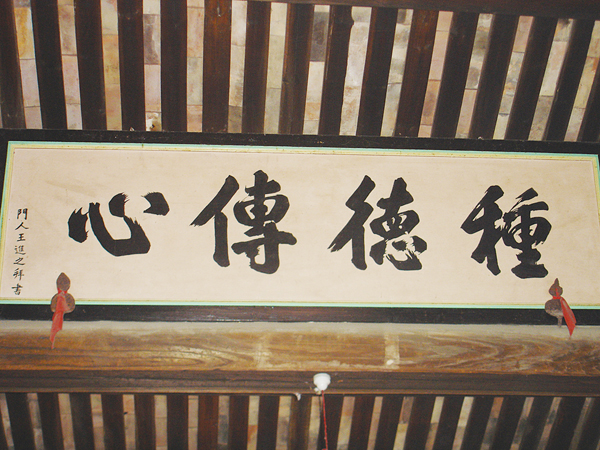 種德傳心
門人王進之拜書